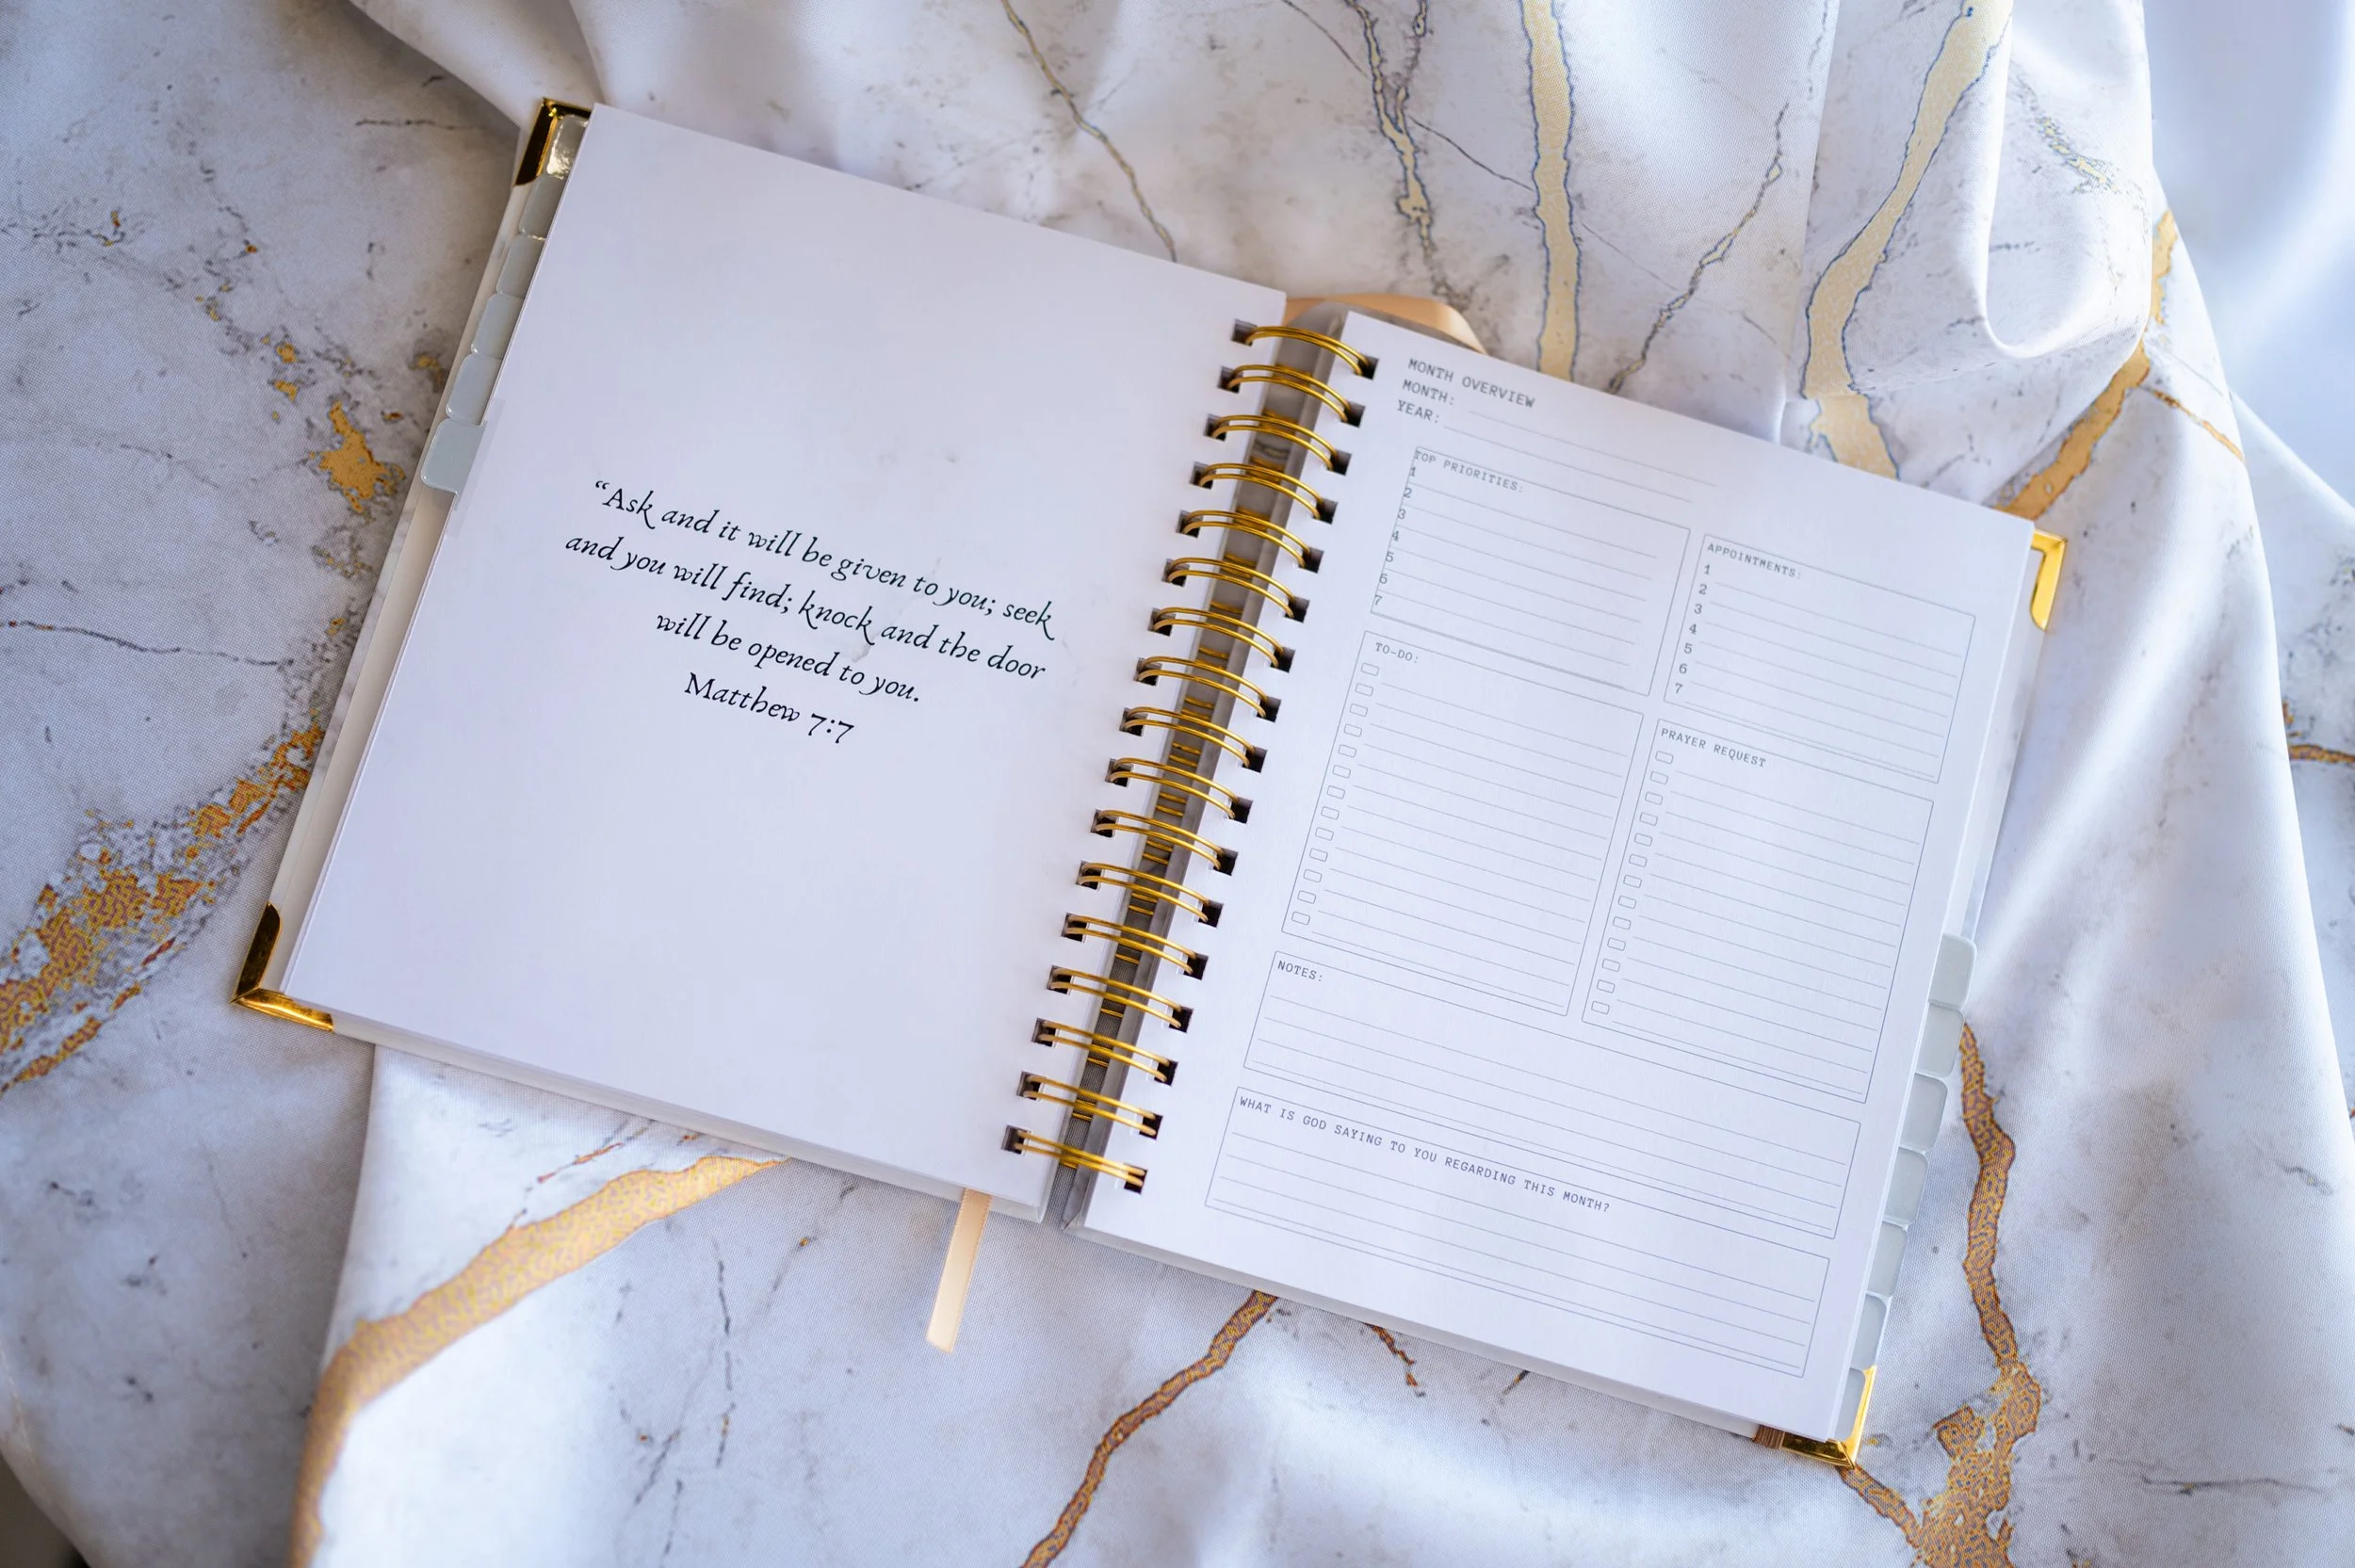 “Ask and it will be given to you; seek
and you will find; knock and the door
will be opened to you.
Matthew 7:7
MONTH OVERVIEW
MONTH:
YEAR:
TOP PRIORITIES:
1
2
3
4
5
6
7
APPOINTMENTS:
1
2
3
4
5
6
7
TO-DO:
PRAYER REQUEST
NOTES:
WHAT IS GOD SAYING TO YOU REGARDING THIS MONTH?